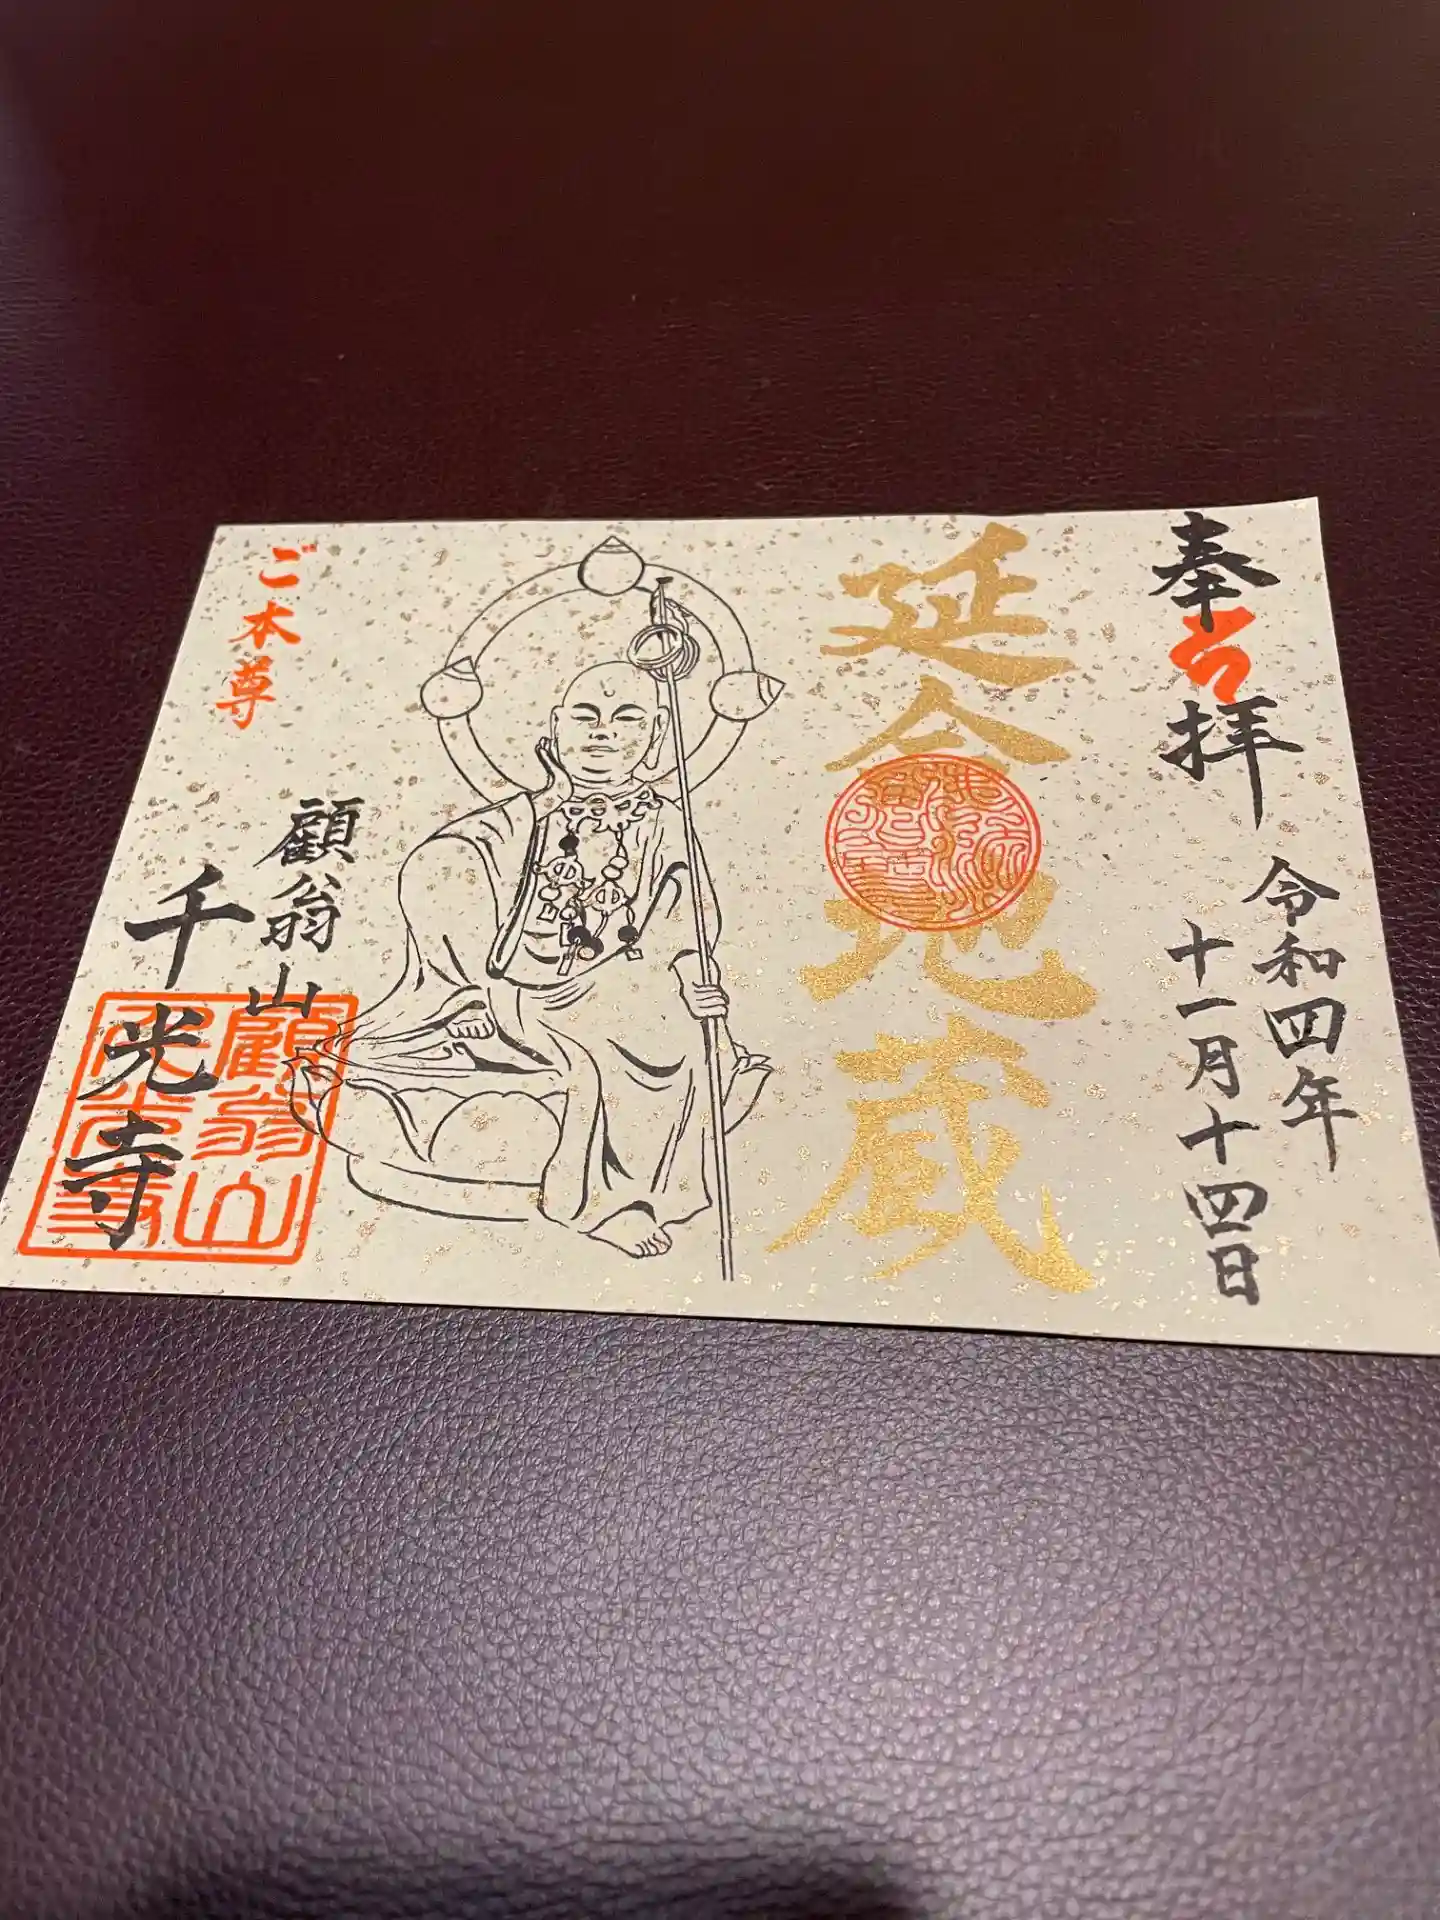 奉拝
令和四年
十一月十四日
延命地蔵
ご本尊
顧翁山
千光寺
顧翁山